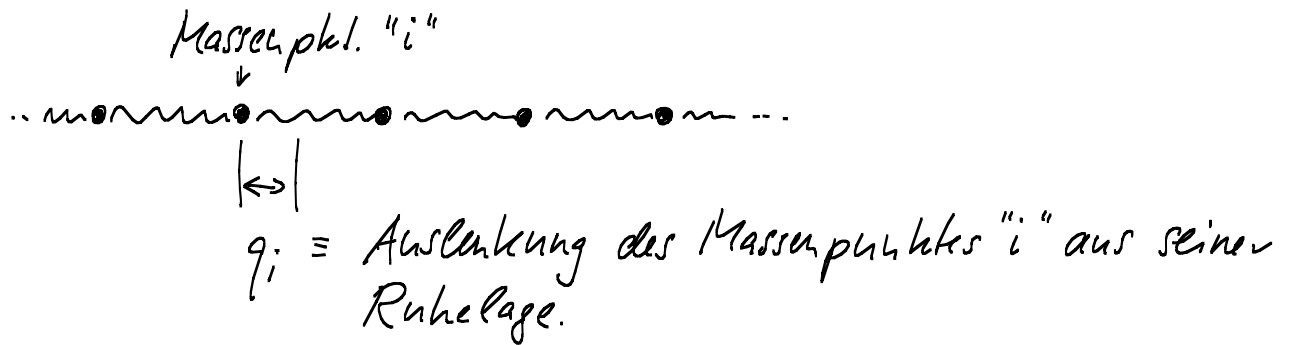 Massenpkt. "i"
q_i ≡ Auslenkung des Massenpunktes "i" aus seiner
Ruhelage.